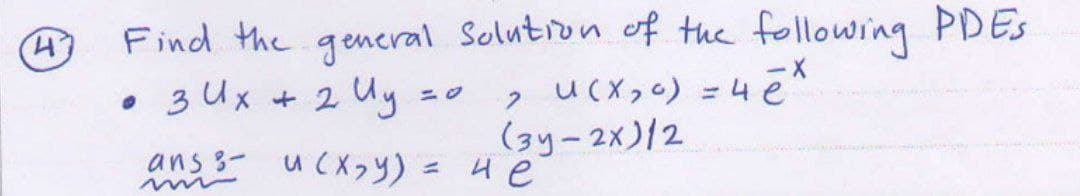 ④ Find the general Solution of the following PDEs
• 3 Ux + 2 Uy = 0 , u(x,0) = 4 e^-x
ans :- u(x,y) = 4 e^(3y-2x)/2